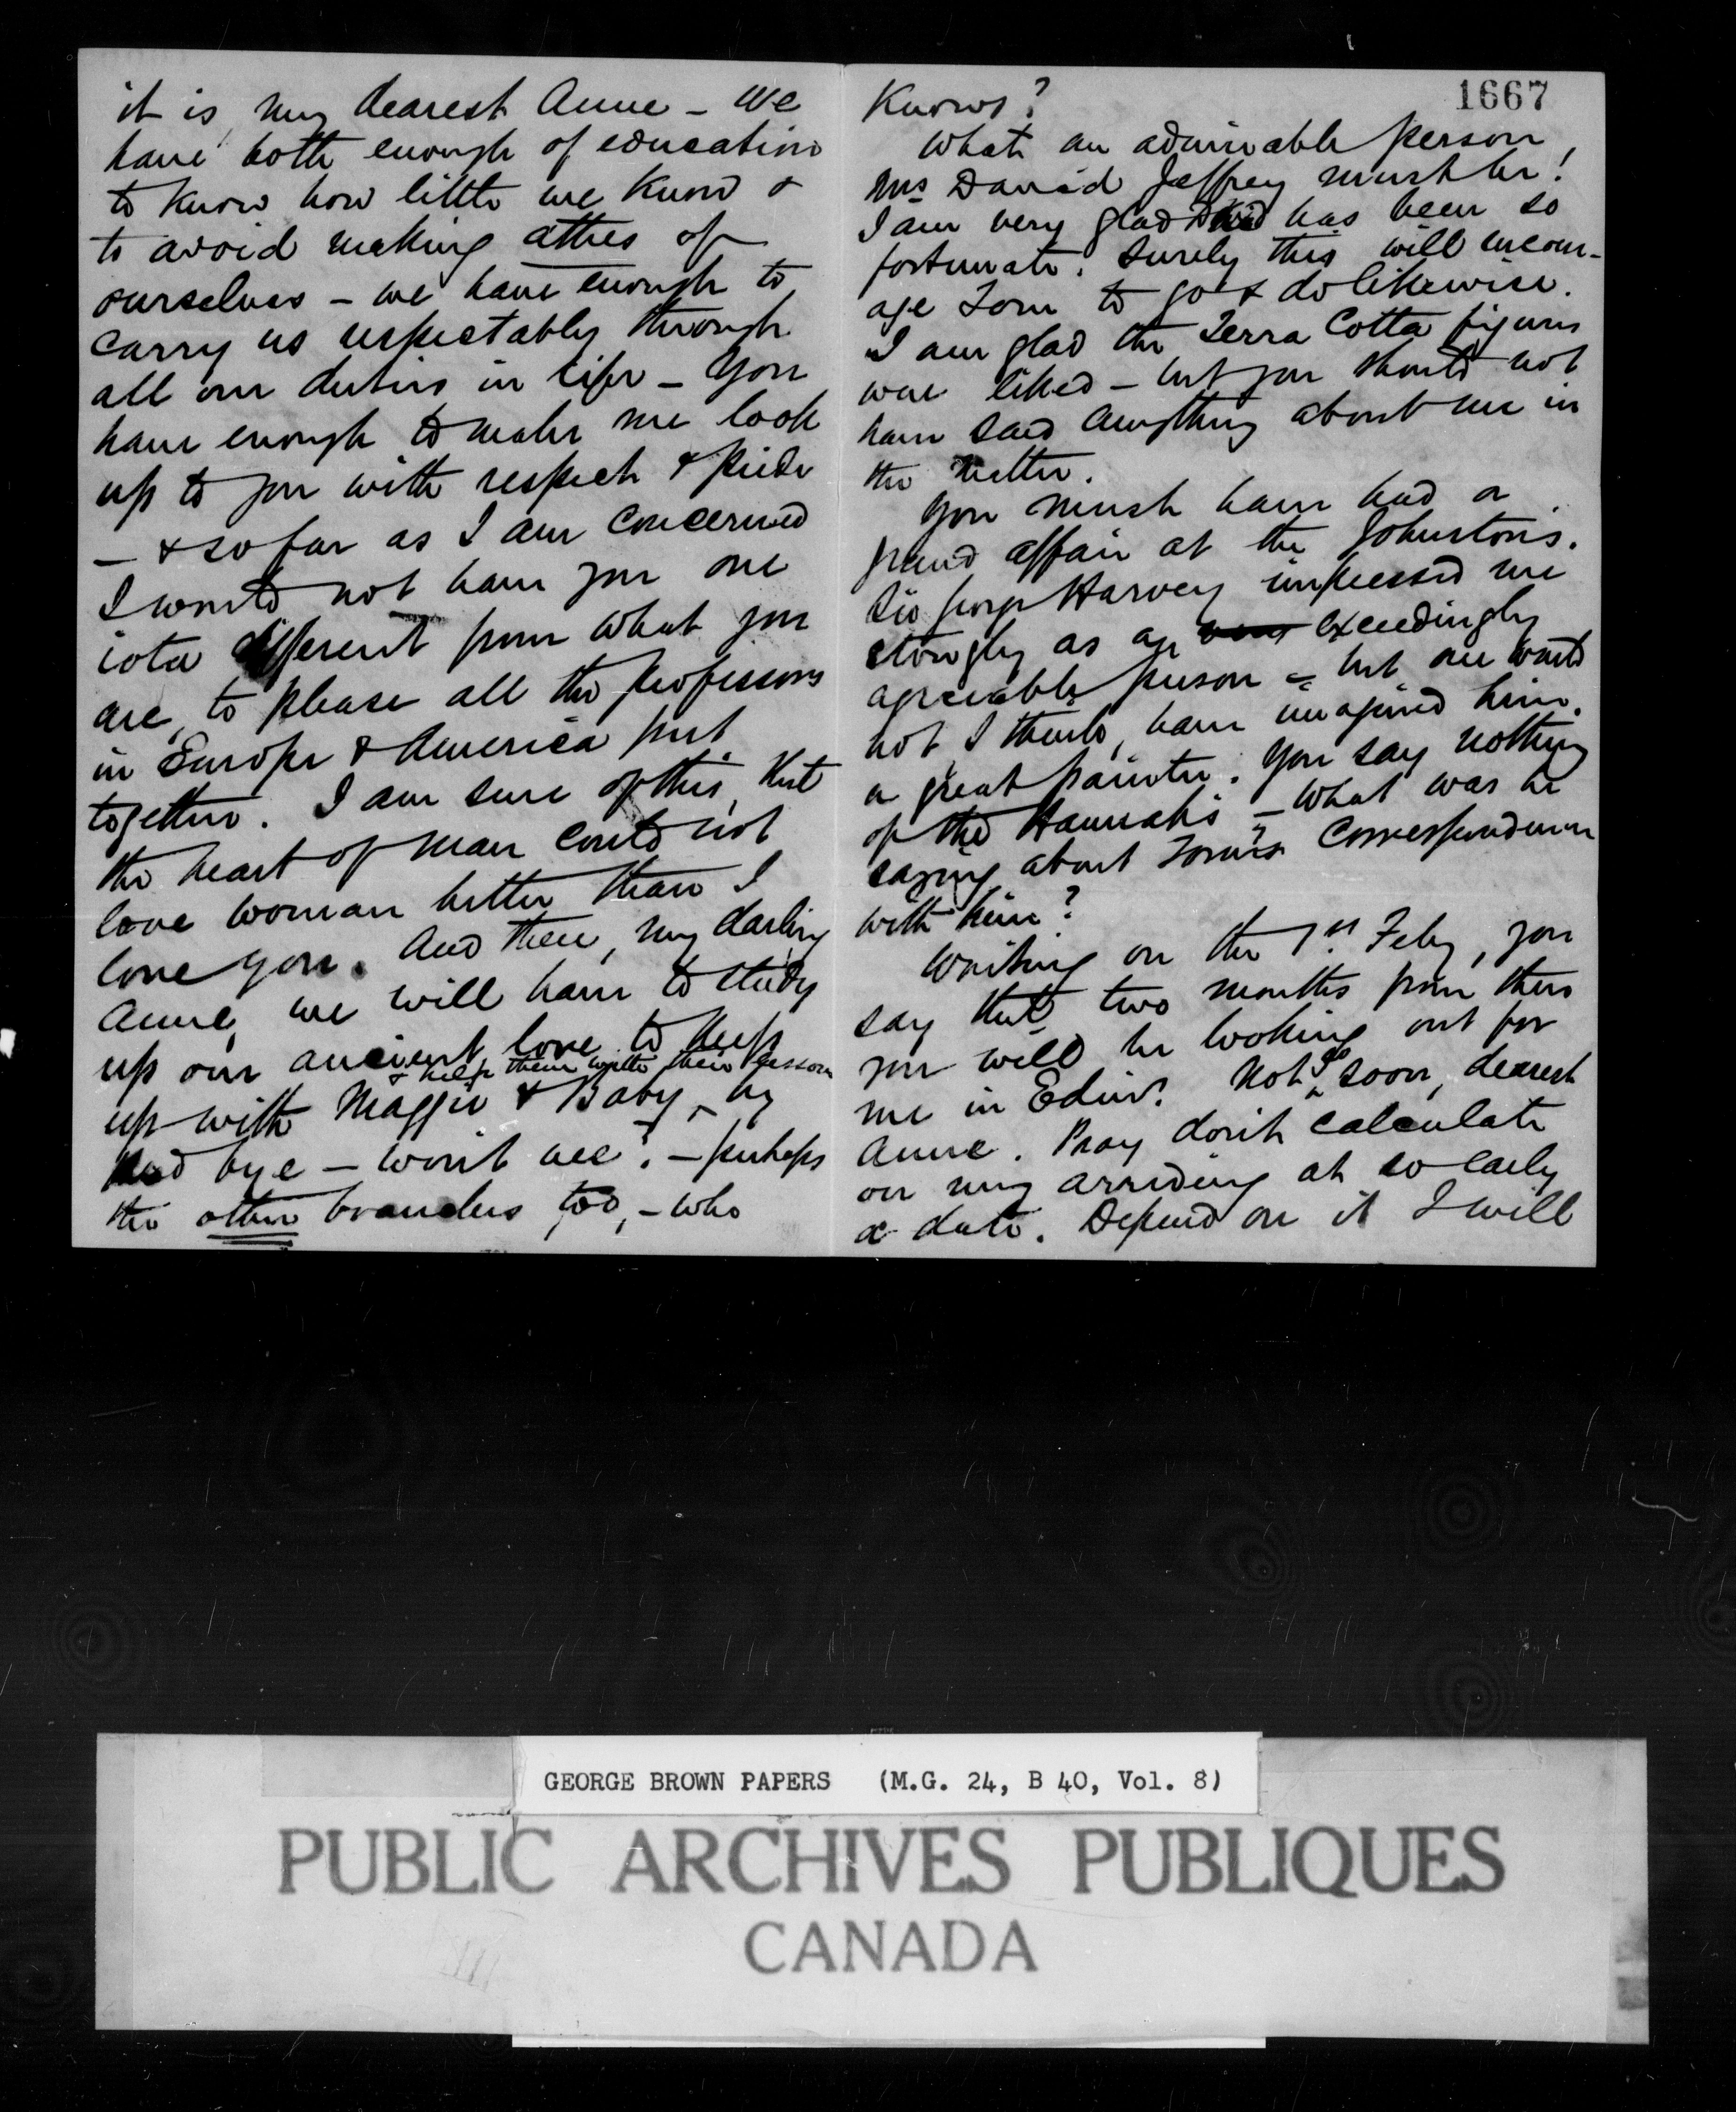 it is my dearest Anne - We
have both enough of education
to know how little we know &
to avoid making asses of
ourselves - we have enough to
carry us respectably through
all our duties in life - You
have enough to make me look
up to you with respect & pride
- & so far as I am concerned
I would not have you one
iota different from what you
are, to please all the professors
in Europe & America put
together. I am sure of this, that
the heart of man could not
love woman better than I
love you. And then, my darling
Anne, we will have to study
up our ancient love to keep
& help them with their lessons
up with Maggie & Baby, by
and bye - wont we? - perhaps
the other branches too, - who
1667
Knows?
What an admirable person,
Mrs David Jaffrey must be!
I am very glad David has been so
fortunate. Surely this will encour-
age Tom to go & do likewise.
I am glad the Terra Cotta figures
were liked - but you should not
have said anything about me in
the matter.
You must have had a
grand affair at the Johnstons.
Sir George Harvey impressed me
strongly as a very exceedingly
agreeable person - but one would
not, I think, have imagined him,
a great painter. You say nothing
of the Hannahs - What was he
saying about Tom's correspondence
with him?
Writing on the 1st Feby, you
say that two months from then
you will be looking out for
me in Edinr. Not so soon, dearest
Anne. Pray don't calculate
on my arriving at so early
a date. Depend on it I will
GEORGE BROWN PAPERS (M.G. 24, B 40, Vol. 8)
PUBLIC ARCHIVES PUBLIQUES
CANADA